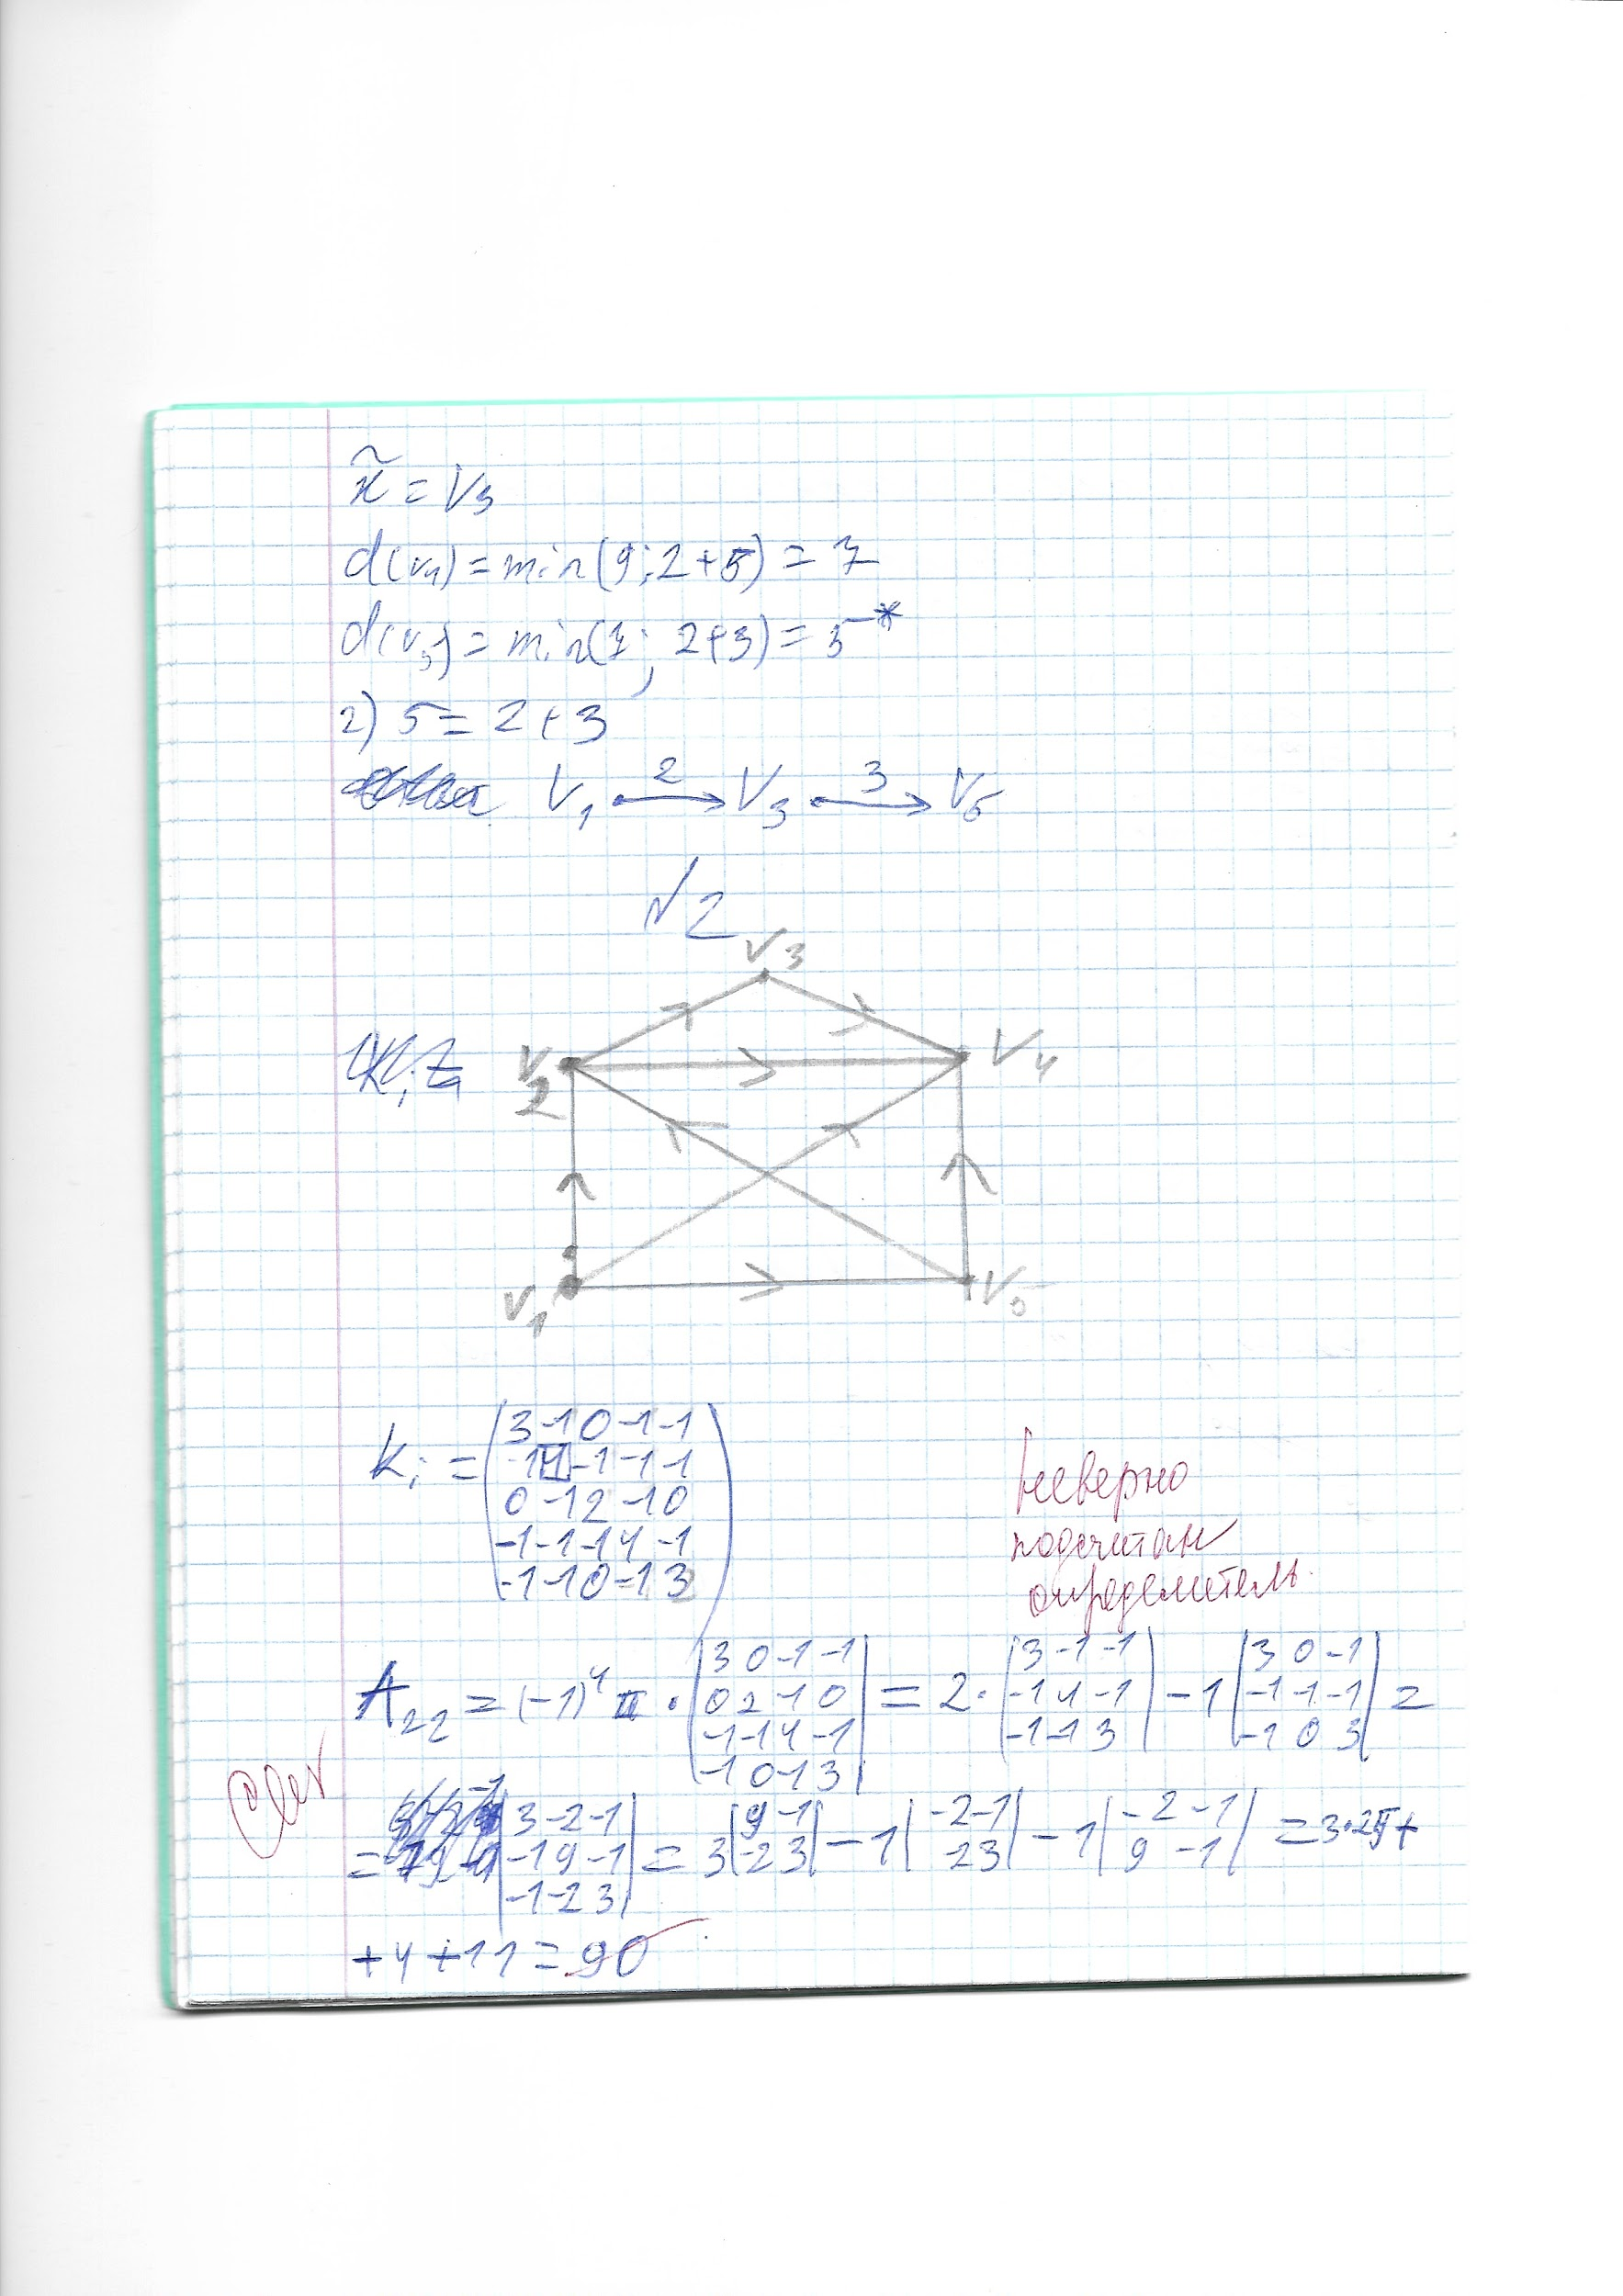 x̃ = V3
d(v4) = min(9; 2+5) = 7
d(v5) = min(7; 2+3) = 5*
2) 5 = 2+3
V1 2→ V3 3→ V5
№2
V3
V2
V4
V1
V5
Ki =
3 -1 0 -1 -1
-1 4 -1 -1 -1
0 -1 2 -1 0
-1 -1 -1 4 -1
-1 -1 0 -1 3
неверно
подсчитан
определитель.
A22 = (-1)^4 · |3 0 -1 -1; 0 2 -1 0; -1 -1 4 -1; -1 0 -1 3| = 2· |3 -1 -1; -1 4 -1; -1 -1 3| -1 |3 0 -1; -1 -1 -1; -1 0 3| =
= |3 -2 -1; -1 9 -1; -1 -2 3| = 3 |9 -1; -2 3| -1 |-2 -1; -2 3| -1 |-2 -1; 9 -1| = 3·25 +
+4 +11 = 90